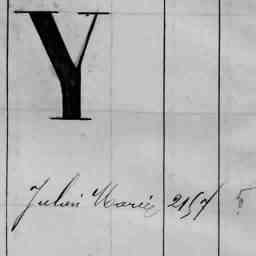 Y
Julien Marie 2157